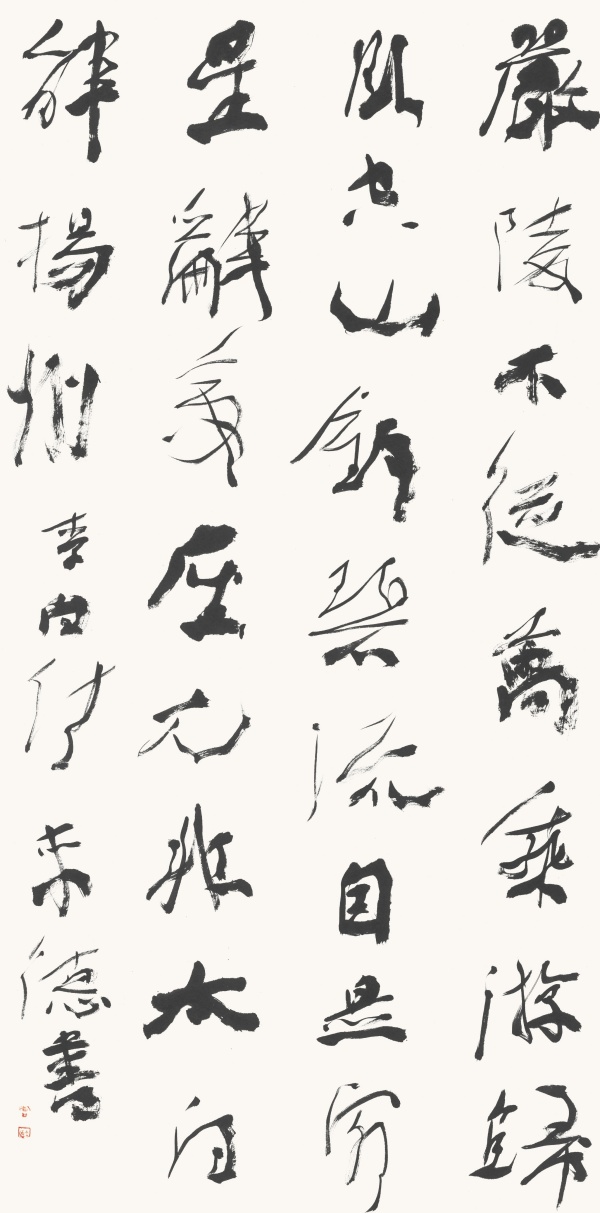 嚴陵不從萬乘游歸
臥空山釣碧流自是客
星辭帝座元非太白
醉揚州李白詩来德書